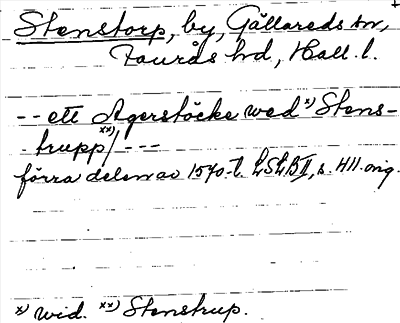 Stenstorp, by, Gällareds sn,
Faurås hd, Hall. l.
-- ett Agerstöcke wed x) Stens-
trupp xx)/ ---
förra delen av 1540-t. LSLB II, s. 411. orig.
x) wid. xx) Stenstrup.